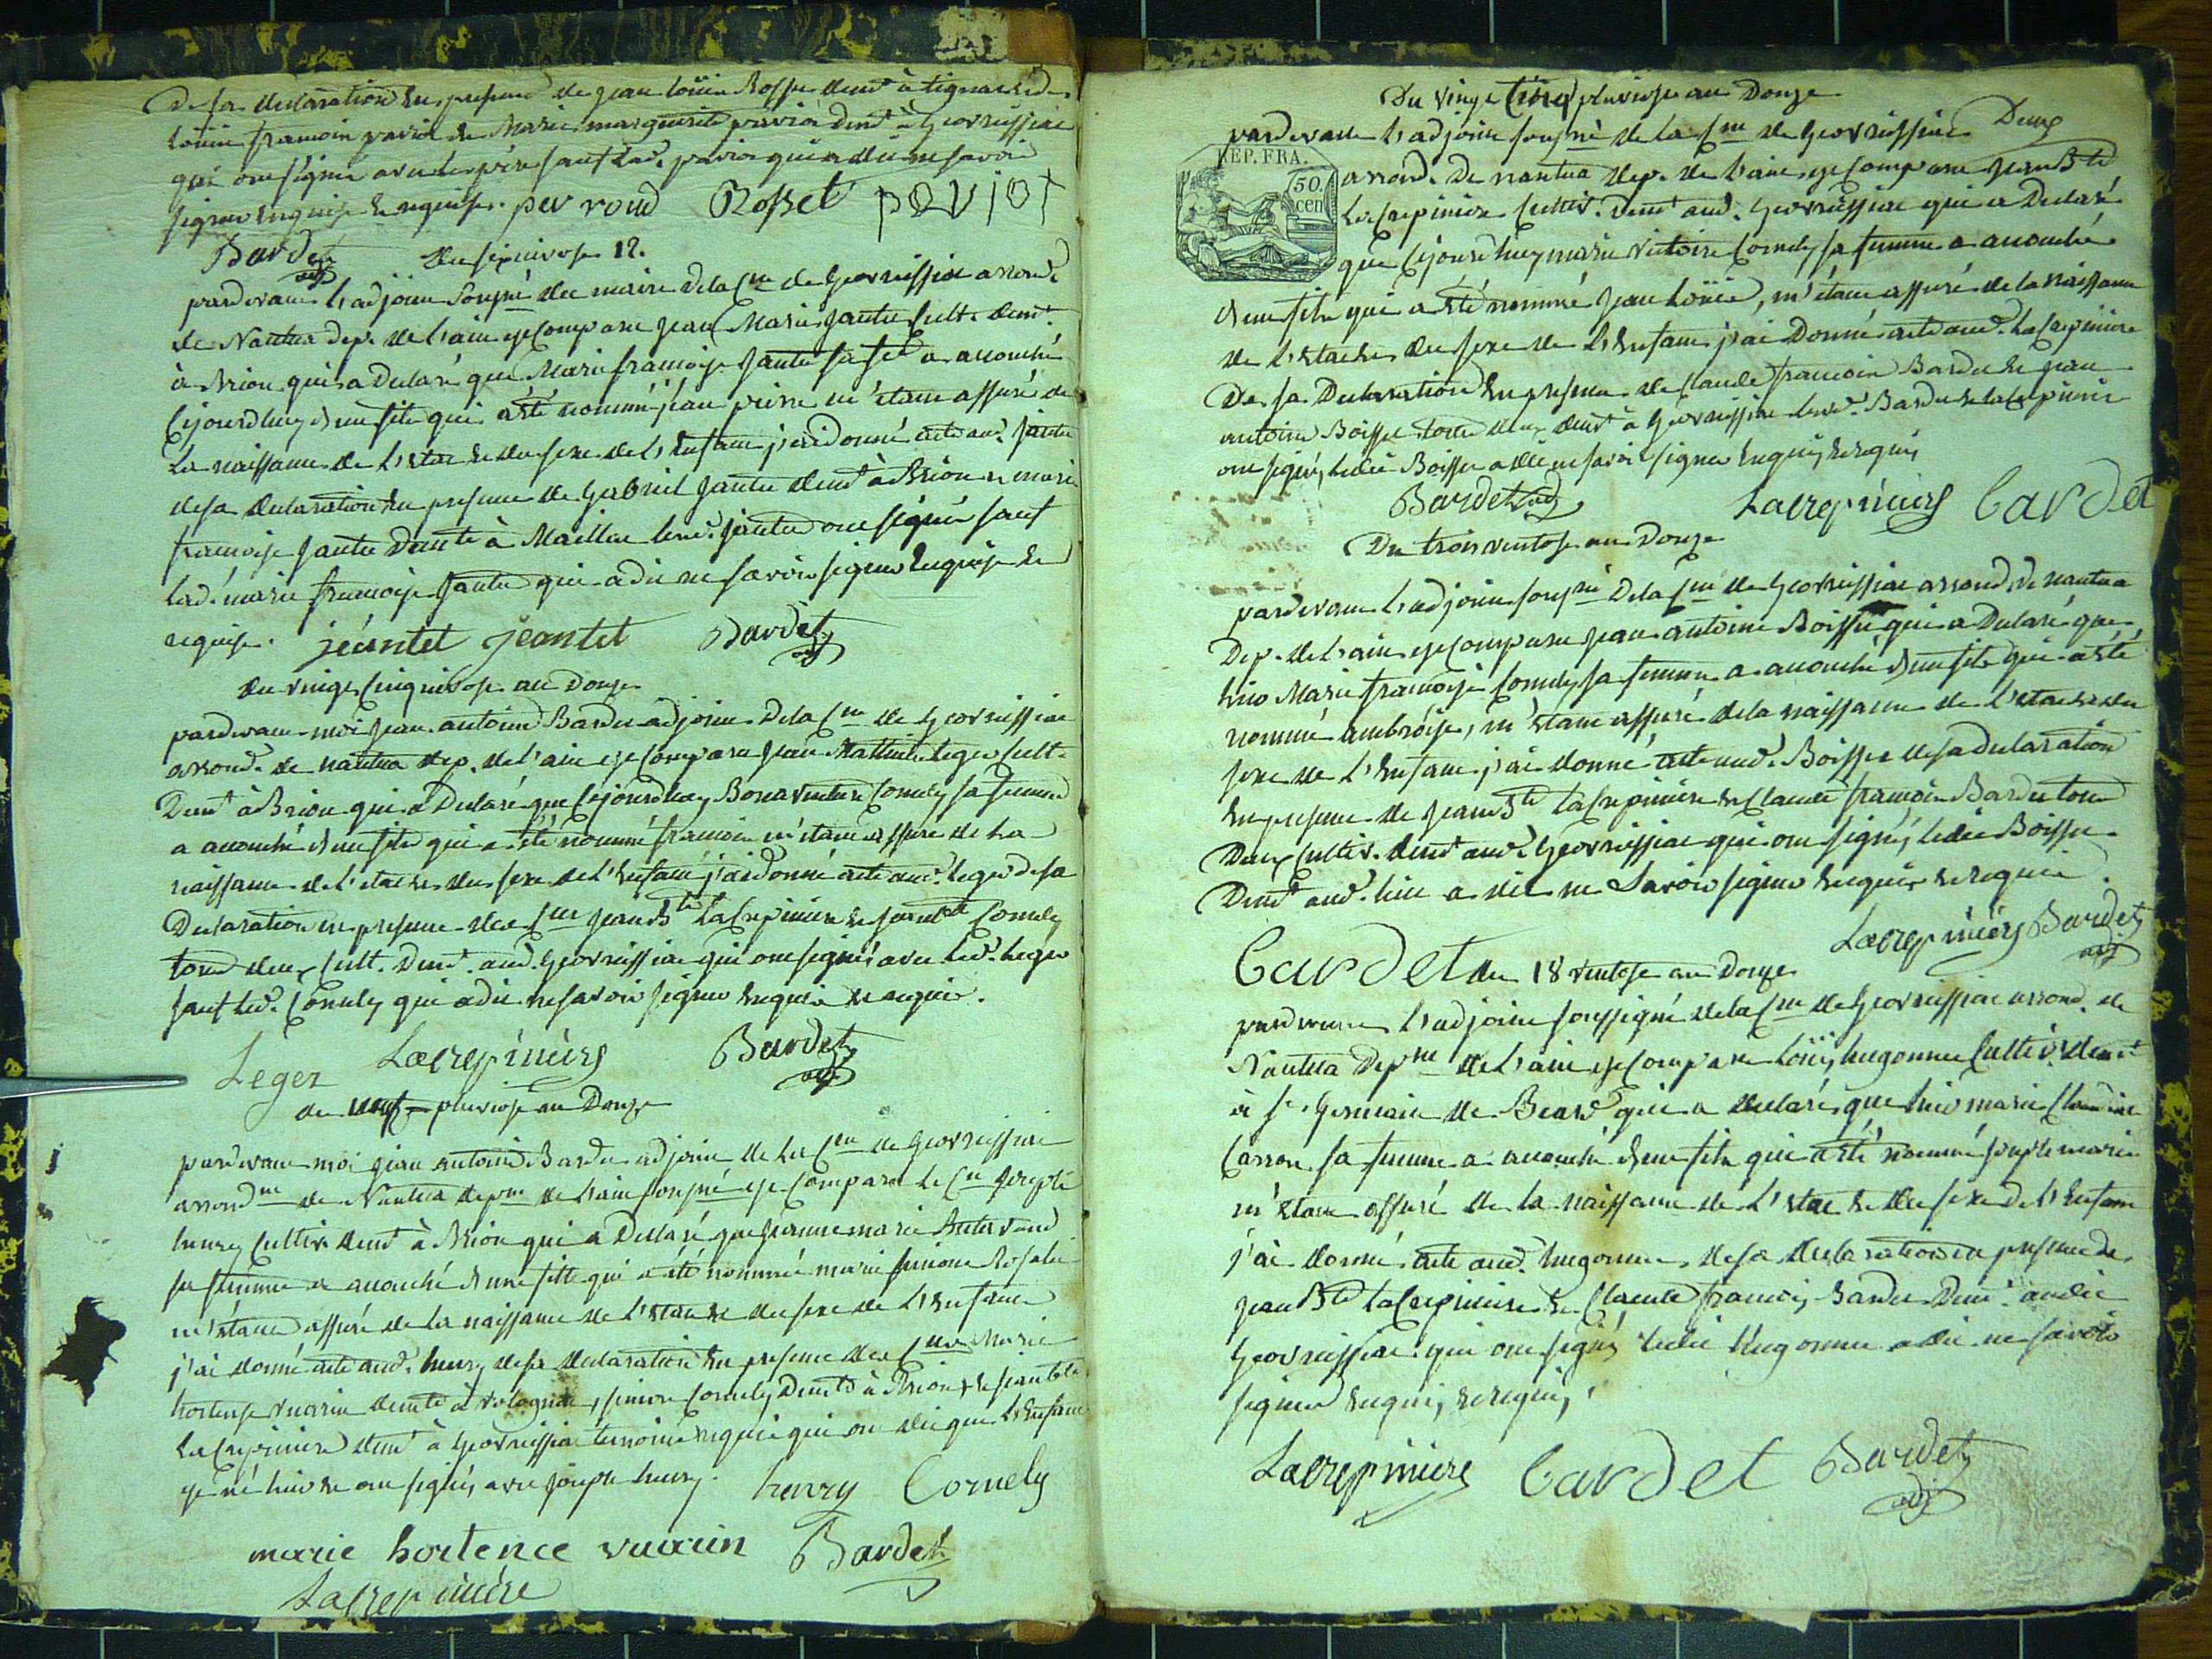 De sa declaration en presence de jean louis Rosset demt à tignat et de
louis francois paviot et Marie marguerite paviot demt à Geovreissiat
qui ont signé avec le père sauf lad. paviot qui a dit ne savoir
signer enquise et requise. perroud Rosset paviot
Bardet adj
du six nivose 12.
pardevant l'adjoint sousné du maire dela Cne de Geovreissiat arrond.
de Nantua dep. de l'ain est comparu jean Marie jantet Cult. demt
à Brion qui a Declaré que Marie françoise jantet sa fe a accouché
cejourdhuy d'un fils qui a été nommé jean pierre m'étant assuré de
la naissance de l'etat et du sexe de l'Enfant j'ai donné acte aud. jantet
desa declaration en presence de Gabriel jantet demt à Brion et marie
françoise jantet demte à Maillat lesd. jantet ont signé sauf
lad. marie françoise jantet qui a dit ne savoir signer Enquise et
requise. jéantet jeantet Bardet adj
du vingt cinq nivose an Douze
pardevant moi jean antoine Bardet adjoint Dela Cne de Geovreissiat
arrond. de nantua dep. de l'ain est comparu jean Mathieu leger Cult.
Demt à Brion qui a Declaré que cejourdhuy Bonaventure Cornely sa femme
a accouché d'un fils qui a été nommé francois m'étant assuré de La
naissance de l'etat et du sexe de l'Enfant j'ai donné acte aud. leger desa
Declaration en presence des Cns jean Bte laCrepiniere et jean Bte Cornely
tous deux Cult. Demt. aud. Geovreissiat qui ont signé avec led. leger
sauf led. Cornely qui a dit ne savoir signer enquis et requis.
Leger Lacrepiniere Bardet adj
du neuf pluviose an Douze
pardevant moi jean antoine Bardet adjoint de la Cne de Geovreissiat
arrondme de Nantua depme de l'ain sousné est Comparu le Cn joseph
henry Cultiv. demt à Brion qui a Declaré que jeanne marie
sa femme a accouché d'une fille qui a été nommée marie simone Rosalie
m'étant assuré de la naissance de l'etat et du sexe de l'Enfant
j'ai donné acte aud. henry desa declaration en presence des Cnes Marie
hortense vuarin demte à volognat, simone Cornely Demte à Brion et jean Bte
laCrepiniere demt à Geovreissiat temoins requis qui ont dit que l'Enfant
est né hier et ont signé, avec joseph henry. henry Cornely
marie hortence vuarin Bardet
Lacrepiniere
Du vingt cinq pluviose an Douze
Deux
pardevant l'adjoint sousné de la Cne de Geovreissiat
REP. FRA.
50.
cen
arrond. De nantua dep. de l'ain est Comparu jean Bte
laCrepiniere Cultiv. demt aud. Geovreissiat qui a Declaré
que Cejourdhuy marie victoire Cornely sa femme a accouché
d'un fils qui a été nommé jean loüis, m'étant assuré de la naissance
de l'etat et du sexe de l'Enfant j'ai Donné acte aud. laCrepiniere
De sa Declaration En presence de Claude francois Bardet et jean
antoine Boisset tous deux demt à Geovreissiat lesd. Bardet et laCrepiniere
ont signé, ledit Boisset a dit ne savoir signer Enquis, et requis,
Bardet adj Lacrepiniere Bardet
Du trois ventose an Douze
pardevant l'adjoint sousné Dela Cne de Geovreissiat arrond. de nantua
Dep. de l'ain est comparu jean antoine Boisset qui a Declaré que
hier Marie françoise Cornely sa femme a accouché d'un fils qui a été
nommé ambroise, m'étant assuré dela naissance de l'etat et du
sexe de l'Enfant j'ai donné acte aud. Boisset desa declaration
en presence de jean Bte laCrepiniere et Claude francois Bardet tous
Deux Cultiv. demt aud. Geovreissiat qui ont signé, ledit Boisset
Demt aud. lieu a dit ne Savoir signer enquis et requis.
Lacrepiniere Bardet adj
Bardet du 18 ventose an Douze
pardevant l'adjoint soussigné dela Cne de Geovreissiat arrond. de
Nantua Depme de l'ain est Comparu loüis hugonnet Cultiv. demt
à St. Germain de Beard qui a declaré que hier marie Claudine
Carron sa femme a accouché d'un fils qui a été nommé joseph marie
m'étant assuré de la naissance de l'etat et du sexe de l'Enfant
j'ai donné acte aud. hugonnet desa declaration en presence de
jean Bte laCrepiniere et Claude francois Bardet Demt. audit
Geovreissiat qui ont signé, ledit hugonnet a dit ne savoir
signer enquis, et requis,
Lacrepiniere Bardet Bardet adj